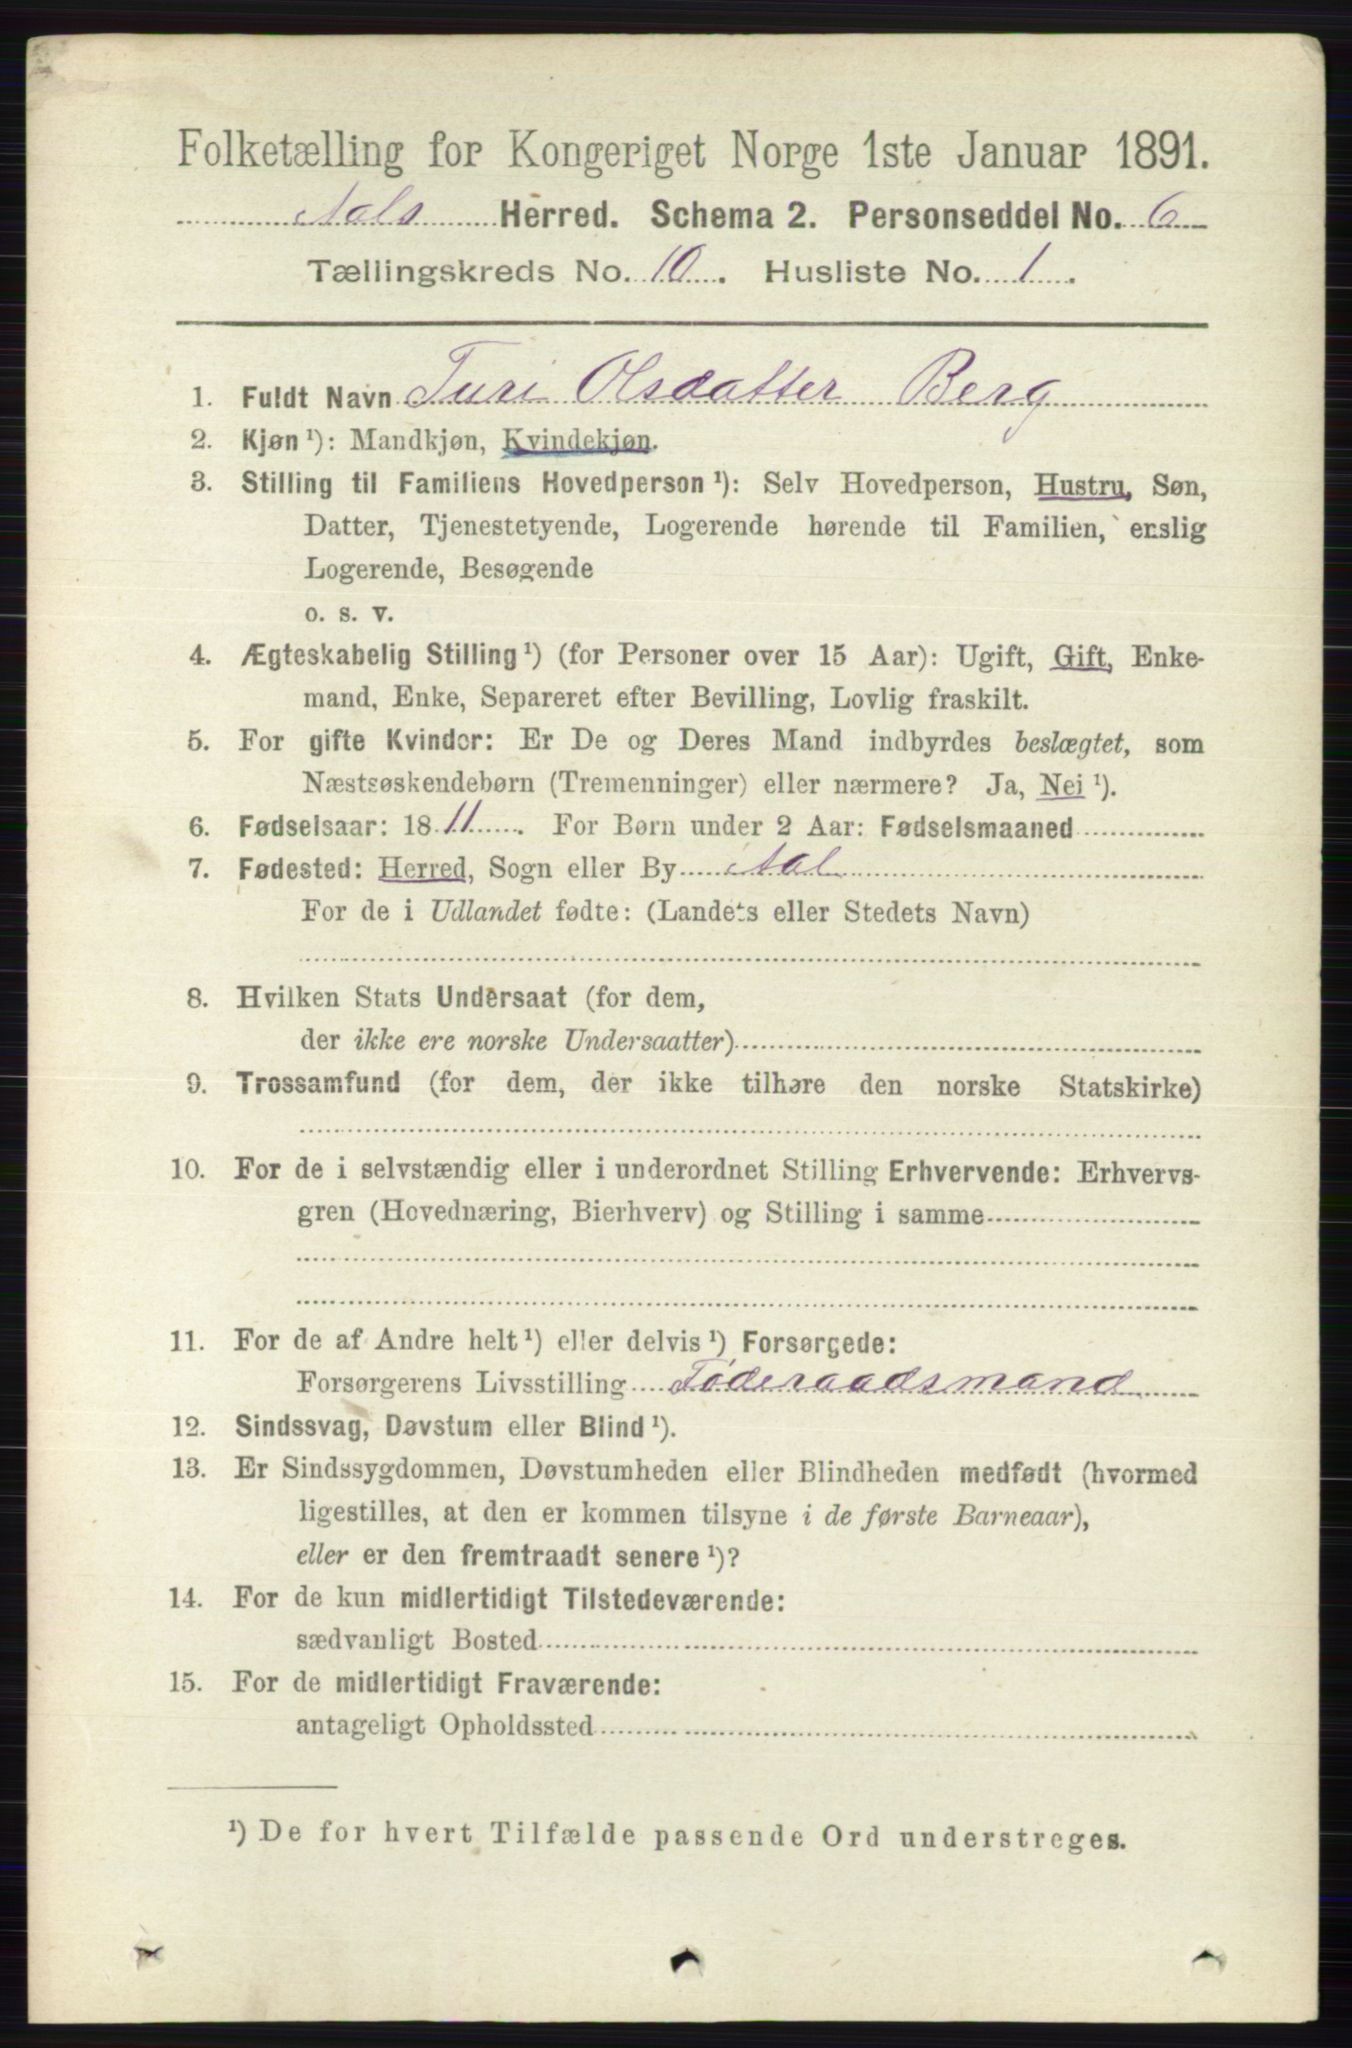 Folketælling for Kongeriget Norge 1ste Januar 1891.
Aals Herred. Schema 2. Personseddel No. 6
Tællingskreds No. 10. Husliste No. 1.
1. Fuldt Navn Turi Olsdatter Berg
2. Kjøn ¹): Mandkjøn, Kvindekjøn.
3. Stilling til Familiens Hovedperson ¹): Selv Hovedperson, Hustru, Søn,
Datter, Tjenestetyende, Logerende hørende til Familien, enslig
Logerende, Besøgende
o. s. v.
4. Ægteskabelig Stilling ¹) (for Personer over 15 Aar): Ugift, Gift, Enke-
mand, Enke, Separeret efter Bevilling, Lovlig fraskilt.
5. For gifte Kvinder: Er De og Deres Mand indbyrdes beslægtet, som
Næstsøskendebørn (Tremenninger) eller nærmere? Ja, Nei ¹).
6. Fødselsaar: 1811. For Børn under 2 Aar: Fødselsmaaned
7. Fødested: Herred, Sogn eller By Aal
For de i Udlandet fødte: (Landets eller Stedets Navn)
8. Hvilken Stats Undersaat (for dem,
der ikke ere norske Undersaatter)
9. Trossamfund (for dem, der ikke tilhøre den norske Statskirke)
10. For de i selvstændig eller i underordnet Stilling Erhvervende: Erhvervs-
gren (Hovednæring, Bierhverv) og Stilling i samme
11. For de af Andre helt ¹) eller delvis ¹) Forsørgede:
Forsørgerens Livsstilling Føderaadsmand
12. Sindssvag, Døvstum eller Blind ¹).
13. Er Sindssygdommen, Døvstumheden eller Blindheden medfødt (hvormed
ligestilles, at den er kommen tilsyne i de første Barneaar),
eller er den fremtraadt senere ¹)?
14. For de kun midlertidigt Tilstedeværende:
sædvanligt Bosted
15. For de midlertidigt Fraværende:
antageligt Opholdssted
¹) De for hvert Tilfælde passende Ord understreges.